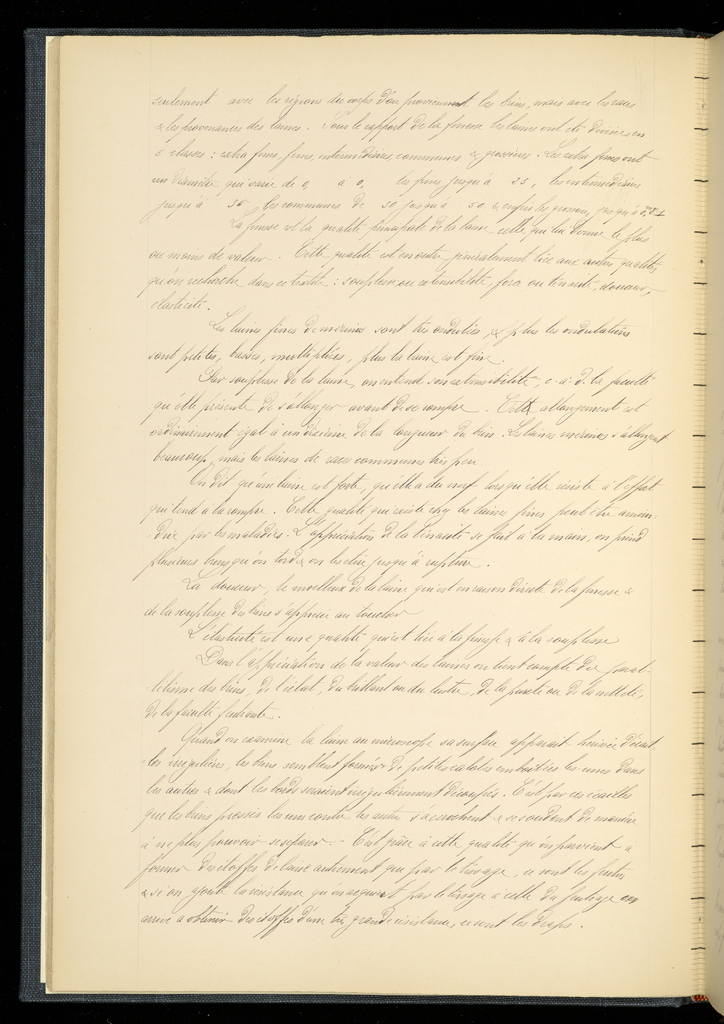 seulement avec les régions du corps d'où proviennent les brins, mais avec les races
& les provenances des laines. Sous le rapport de la finesse les laines ont été divisées en
5 classes : extra fines, fines, intermédiaires, communes & grossières. Les extra fines ont
un diamètre qui varie de 0, à 0, les fines jusqu'à 25, les intermédiaires
jusqu'à 30, les communes de 30 jusqu'à 50 & enfin les grossières, jusqu'à
La finesse est la qualité principale de la laine celle qui lui donne le plus
ou moins de valeur. Cette qualité est en outre généralement liée aux autres qualités,
qu'on recherche dans ce textile : souplesse ou extensibilité, force ou ténacité, douceur,
élasticité.
Les laines fines de mérinos sont très ondulées, & plus les ondulations
sont petites, basses, multipliées, plus la laine est fine.
Par souplesse de la laine, on entend son extensibilité, c. à. d. la faculté
qu'elle présente de s'allonger avant de se rompre. Cet allongement est
ordinairement égal à un dixième de la longueur du brin. Les laines mérinos s'allongent
beaucoup, mais les laines de races communes très peu.
On dit que une laine est forte, qu'elle a du nerf lorsqu'elle résiste à l'effort
qui tend à la rompre. Cette qualité qui existe chez les laines fines peut être amoin-
drie par les maladies. L'appréciation de la ténacité se fait à la main, on prend
plusieurs brins qu'on tord & on les tire jusqu'à rupture.
La douceur, le moelleux de la laine qui est en raison directe de la finesse &
de la souplesse du brin s'apprécie au toucher
L'élasticité est une qualité qui est liée à la finesse & à la souplesse
Dans l'appréciation de la valeur des laines on tient compte du paral-
lélisme des brins, de l'éclat, du brillant ou du lustre, de la pureté ou de la netteté,
de la faculté feutrante.
Quand on examine la laine au microscope sa surface apparaît hérissée d'écail-
les irrégulières, les brins semblent formés de petites calottes emboitées les unes dans
les autres & dont les bords seraient irrégulièrement découpés. C'est par ces écailles
que les brins pressés les uns contre les autres s'accrochent & se soudent de manière
à ne plus pouvoir se séparer. - C'est grâce à cette qualité qu'on parvient à
former des étoffes de laine autrement que par le tissage, ce sont les feutres
& si on ajoute la résistance qu'on acquiert par le tissage à celle du feutrage on
arrive à obtenir des étoffes d'une très grande résistance, ce sont les draps.